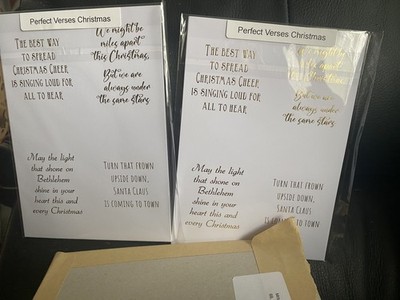 Perfect Verses Christmas
The best way
to spread
Christmas Cheer
is singing loud for
all to hear
We might be
miles apart
this Christmas,
But we are
always under
the same stars.
May the light
that shone on
Bethlehem
shine in your
heart this and
every Christmas
Turn that frown
upside down,
Santa Claus
is coming to town
Perfect Verses Christmas
The best way
to spread
Christmas Cheer
is singing loud for
all to hear
We might be
miles apart
this Christmas,
But we are
always under
the same stars.
May the light
that shone on
Bethlehem
shine in your
heart this and
every Christmas
Turn that frown
upside down,
Santa Claus
is coming to town